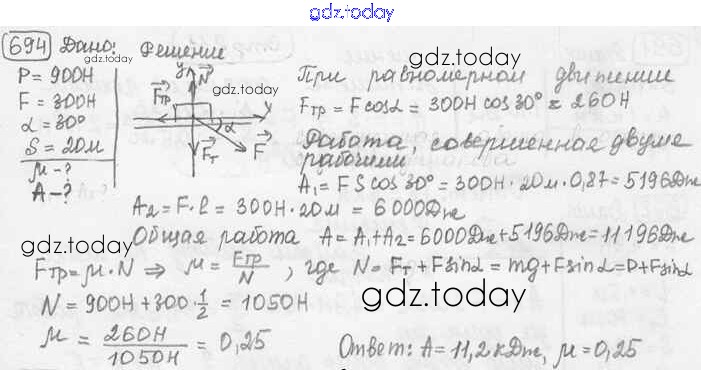 gdz.today
694 Дано: Решение
P = 900Н
F = 300Н
α = 30°
S = 20м
μ - ?
A - ?
y N
Fтр
gdz.today
x
α
Fт
F
gdz.today
При равномерном движении
Fтр = F cosα = 300Н cos 30° ≈ 260Н
Работа, совершенная двуме
рабочими
A₁ = F S cos 30° = 300Н · 20м · 0,87 = 5196Дж
A₂ = F · l = 300Н · 20м = 6000Дж
Общая работа A = A₁ + A₂ = 6000Дж + 5196Дж = 11196Дж
gdz.today
Fтр = μ · N ⇒ μ = Fтр/N , где N = Fт + F sinα = mg + F sinα = P + F sinα
N = 900Н + 300 · 1/2 = 1050Н
gdz.today
μ = 260Н/1050Н = 0,25
Ответ: A = 11,2 кДж, μ = 0,25